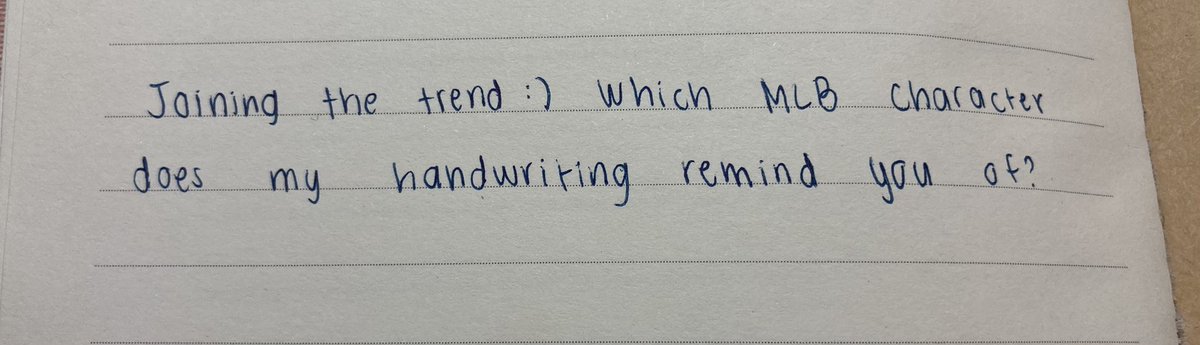 Joining the trend :) Which MLB character
does my handwriting remind you of?